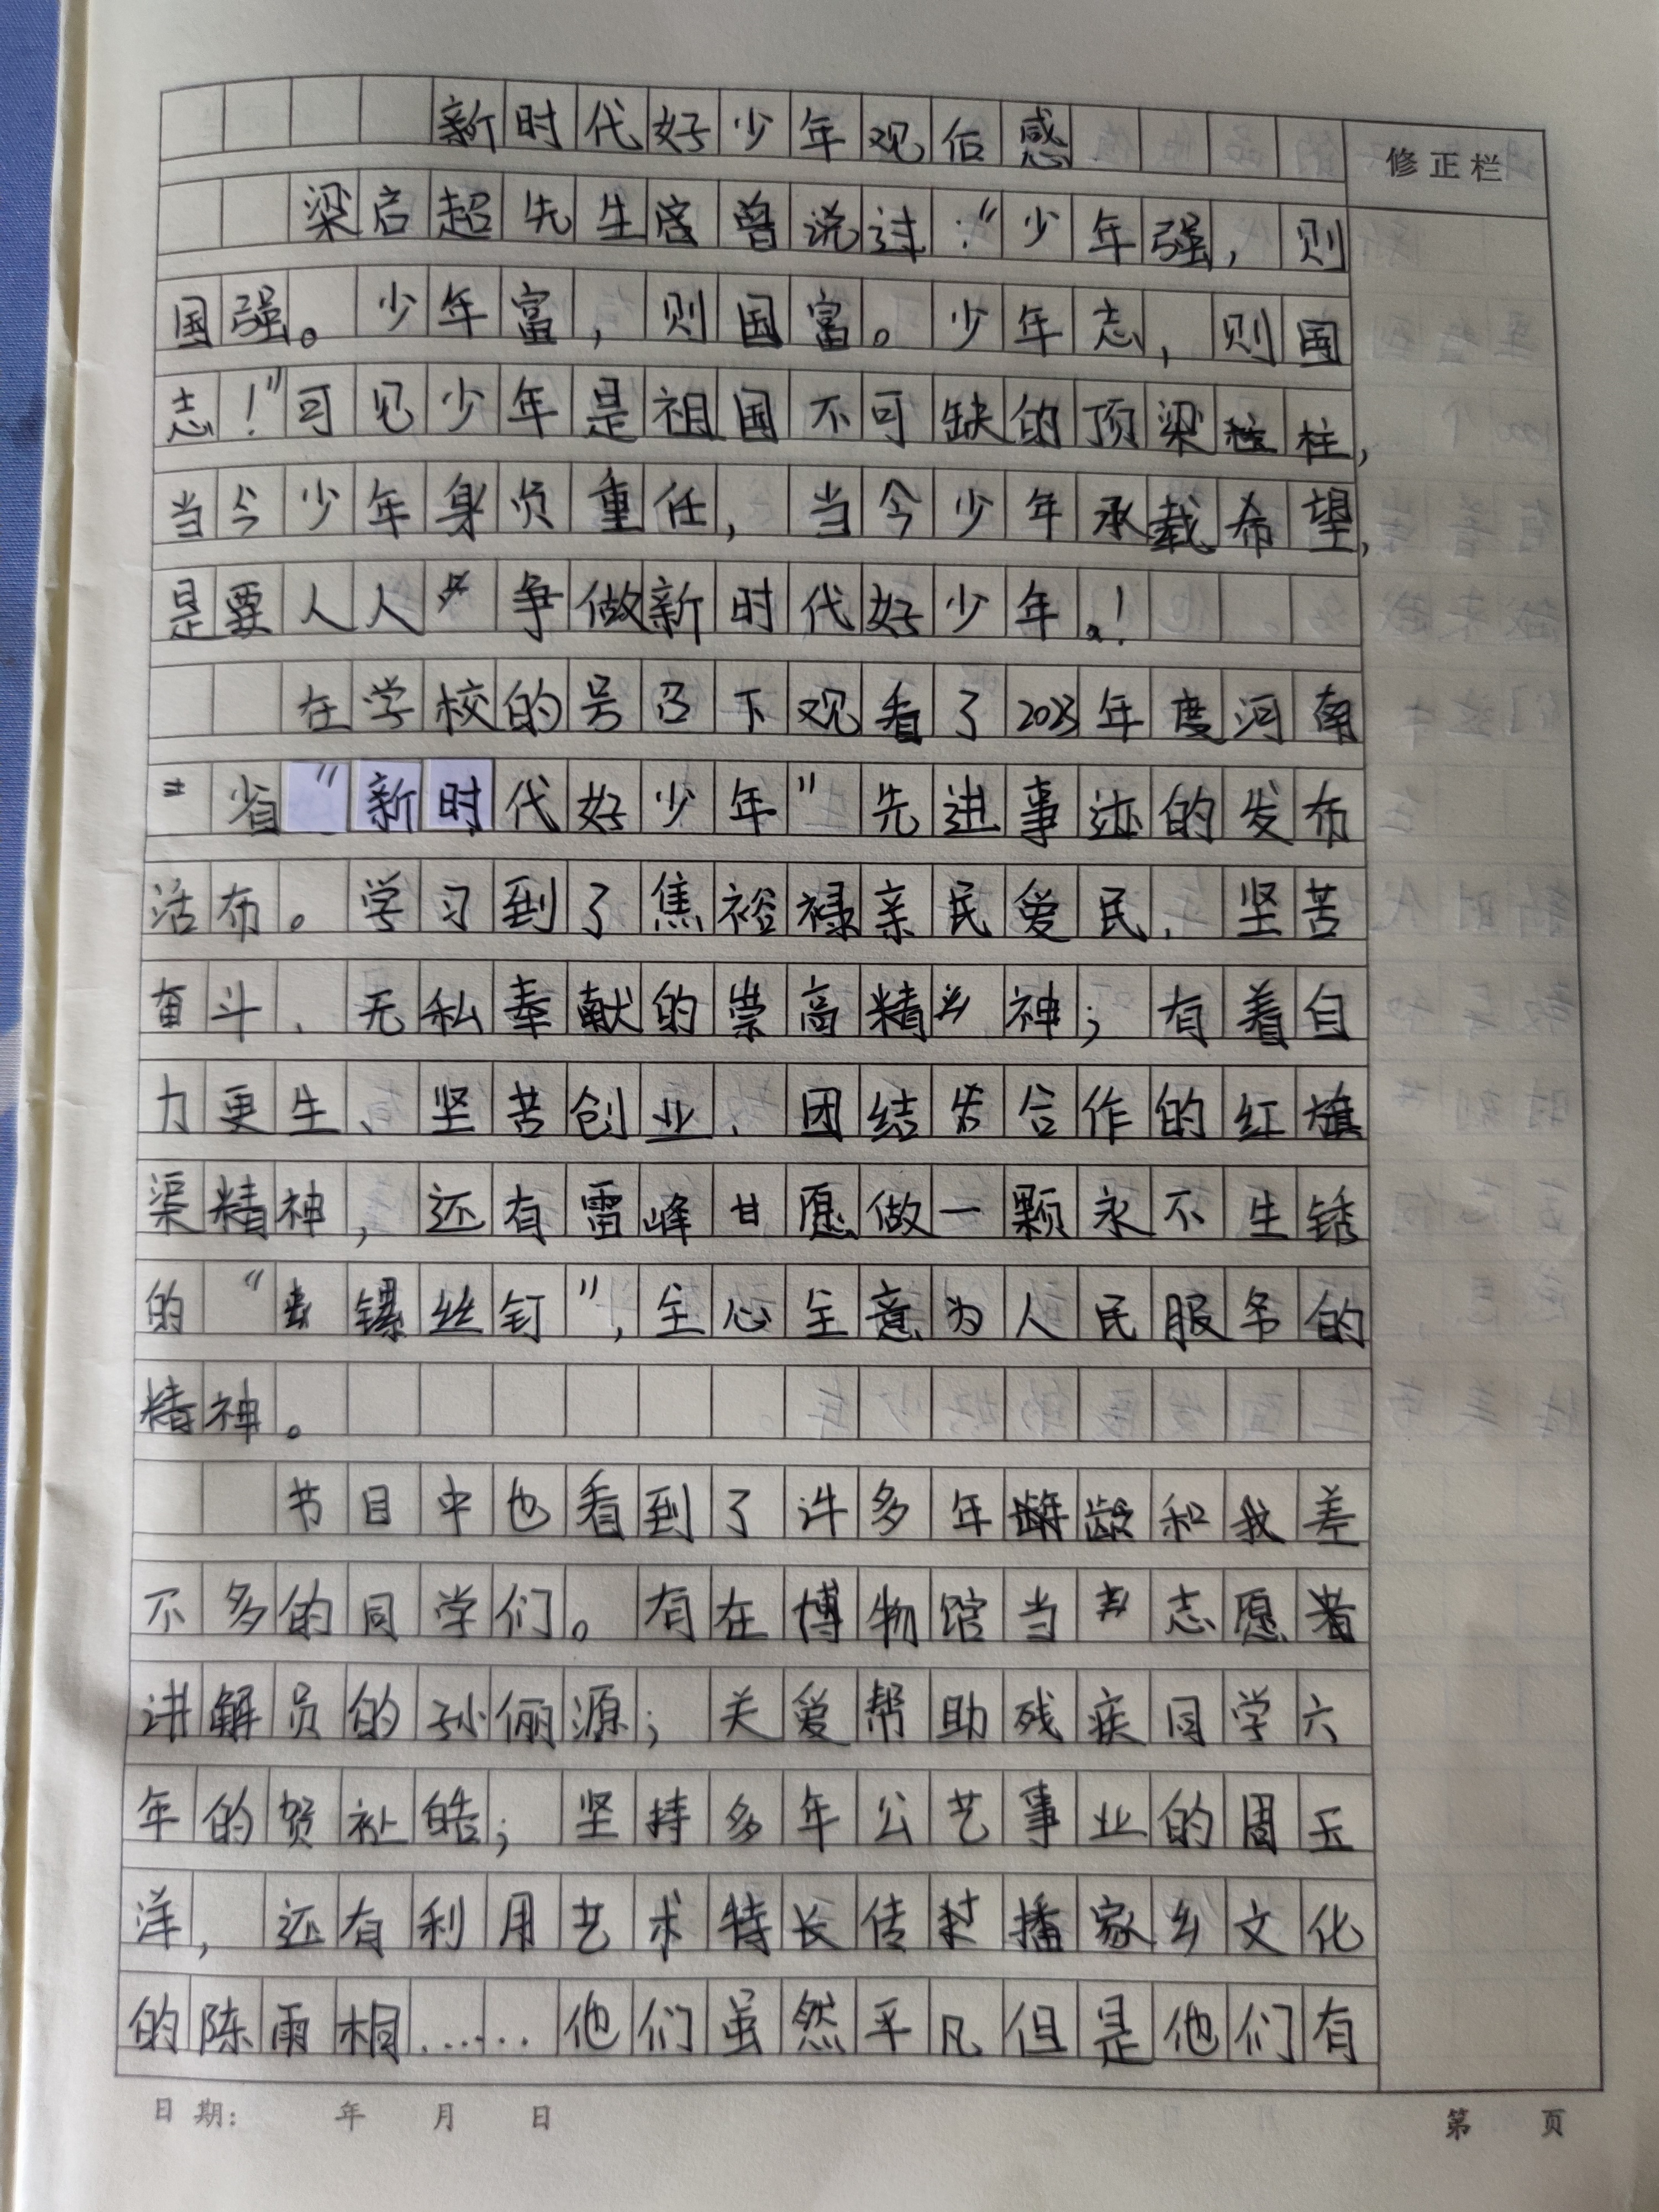 新时代好少年观后感
修正栏
梁启超先生曾说过:“少年强,则
国强。少年富,则国富。少年志,则国
志!”可见少年是祖国不可缺的顶梁柱,
当今少年身负重任,当今少年承载希望,
是要人人争做新时代好少年!
在学校的号召下观看了2023年度河南
省“新时代好少年”先进事迹的发布
活布。学习到了焦裕禄亲民爱民、坚苦
奋斗、无私奉献的崇高精神;有着自
力更生、坚苦创业、团结合作的红旗
渠精神,还有雷峰甘愿做一颗永不生锈
的“镙丝钉”,全心全意为人民服务的
精神。
节目中也看到了许多年龄和我差
不多的同学们。有在博物馆当志愿者
讲解员的孙俪源;关爱帮助残疾同学六
年的贺祉皓;坚持多年公艺事业的周玉
洋,还有利用艺术特长传播家乡文化
的陈雨桐……他们虽然平凡但是他们有
日期: 年 月 日
第 页